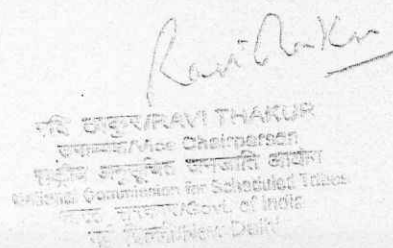 Ravi Thakur
रवि ठाकुर/RAVI THAKUR
उपाध्यक्ष/Vice Chairperson
राष्ट्रीय अनुसूचित जनजाति आयोग
National Commission for Scheduled Tribes
भारत सरकार/Govt. of India
नई दिल्ली/New Delhi